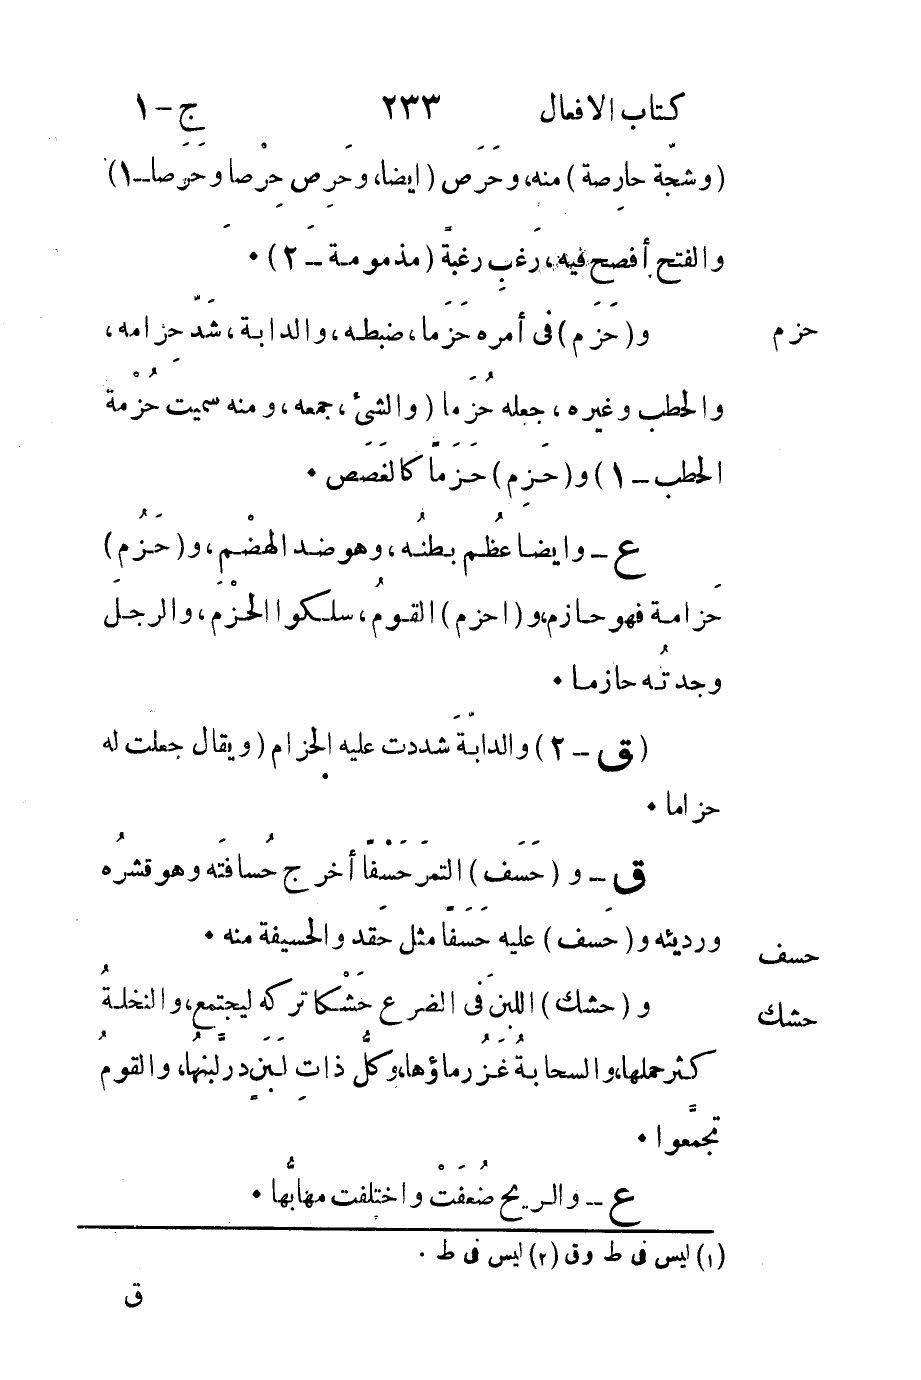 كتاب الافعال ٢٣٣ ج - ١
(وشجّة حارِصة) منه، وحَرَص (ايضا، وحَرِص حِرْصا وحَرَصا - ١)
والفتح أفصح فيه، رَغب رَغبةً (مذمومة - ٢) •
حزم و(حَزَم) فى أمره حَزَما، ضبطه، والدابة، شَدّ حِزامه،
والحطب وغيره، جعله حُزَما (والشئ، جمعه، ومنه سميت حُزْمة
الحطب - ١) و(حَزِم) حَزَماً كالغَصَص •
ع - وايضا عظُم بطنُه، وهو ضد الهضْم، و(حَزُم)
حَزامة فهو حازم، و(احزم) القومُ، سلكوا الحَزْم، والرجلَ
وجدتُه حازما •
(ق - ٢) والدابّةَ شددت عليه الحزام (ويقال جعلت له
حزاما •
ق - و (حَسَف) التمرَ حَسْفًا أخرج حُسافتَه وهو قشرُه
حسف ورديئه و(حَسف) عليه حَسَفاً مثل حَقد والحسيفة منه •
حشك و (حشك) اللبنَ فى الضرع حَشْكا تركه ليجتمع، والنخلةُ
كثر حملها، والسحابةُ غَزُر ماؤها، وكلُّ ذاتِ لَبَنٍ درّ لبنُها، والقومُ
تجمَّعوا •
ع - والريح ضَعُفَتْ واختلفت مهابُّها •
(١) ليس فى ط وق (٢) ليس فى ط .
ق